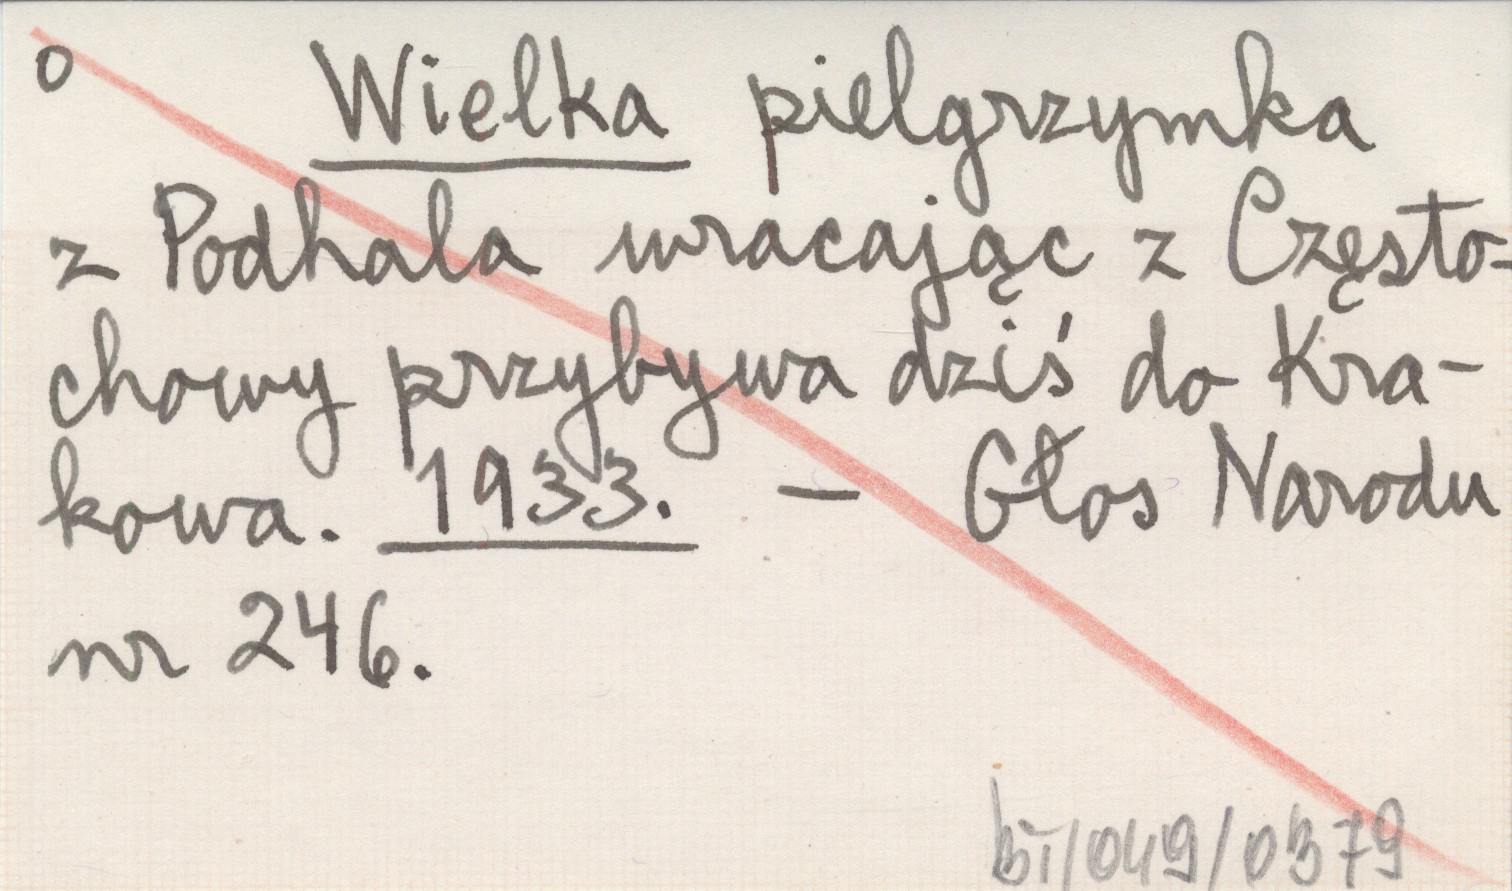 o Wielka pielgrzymka
z Podhala wracając z Często-
chowy przybywa dziś do Kra-
kowa. 1933. – Głos Narodu
nr 246.
bi/049/0379